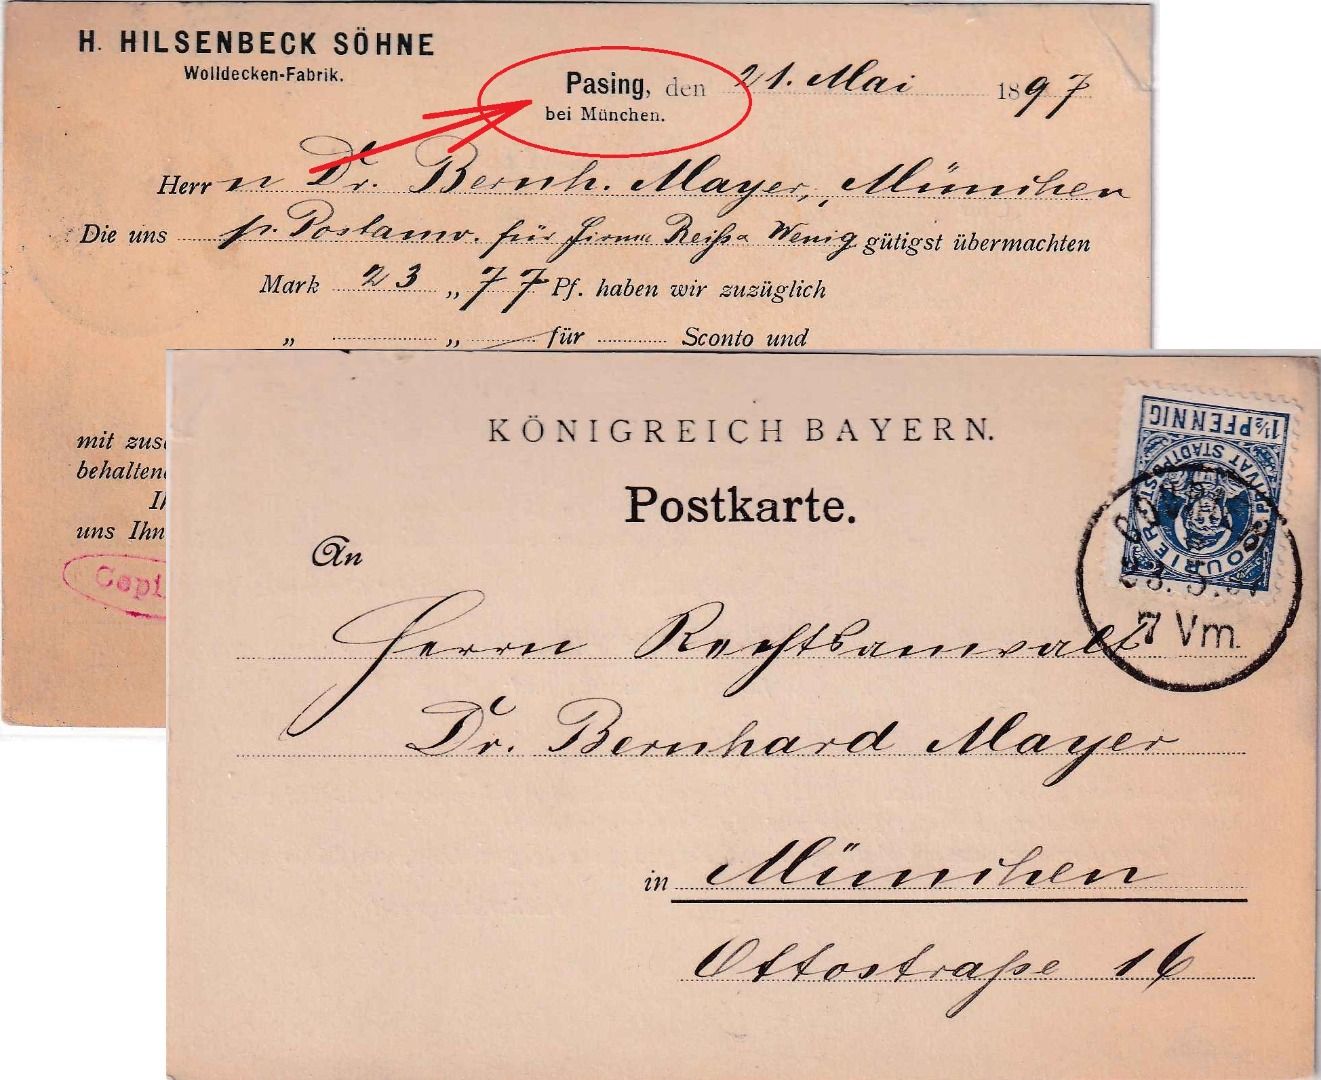 H. HILSENBECK SÖHNE
Wolldecken-Fabrik.
Pasing, den 21. Mai 1897
bei München.
Herrn Dr. Bernh. Mayer, München
Die uns p. Postanw. für Firma Reiß & Wenig gütigst übermachten
Mark 23 „ 77 Pf. haben wir zuzüglich
„ „ für Sconto und
mit zus
behalten
Ih
uns Ihn
Copi
KÖNIGREICH BAYERN.
Postkarte.
1½ PFENNIG
PRIVAT STADTPOST
COURIER
23. 5. 97
7 Vm.
An
Herrn Rechtsanwalt
Dr. Bernhard Mayer
in München
Ottostraße 16